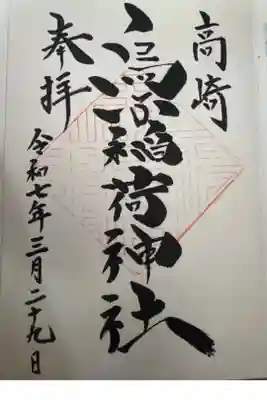 高崎
稲荷神社
奉拝
令和七年三月二十九日